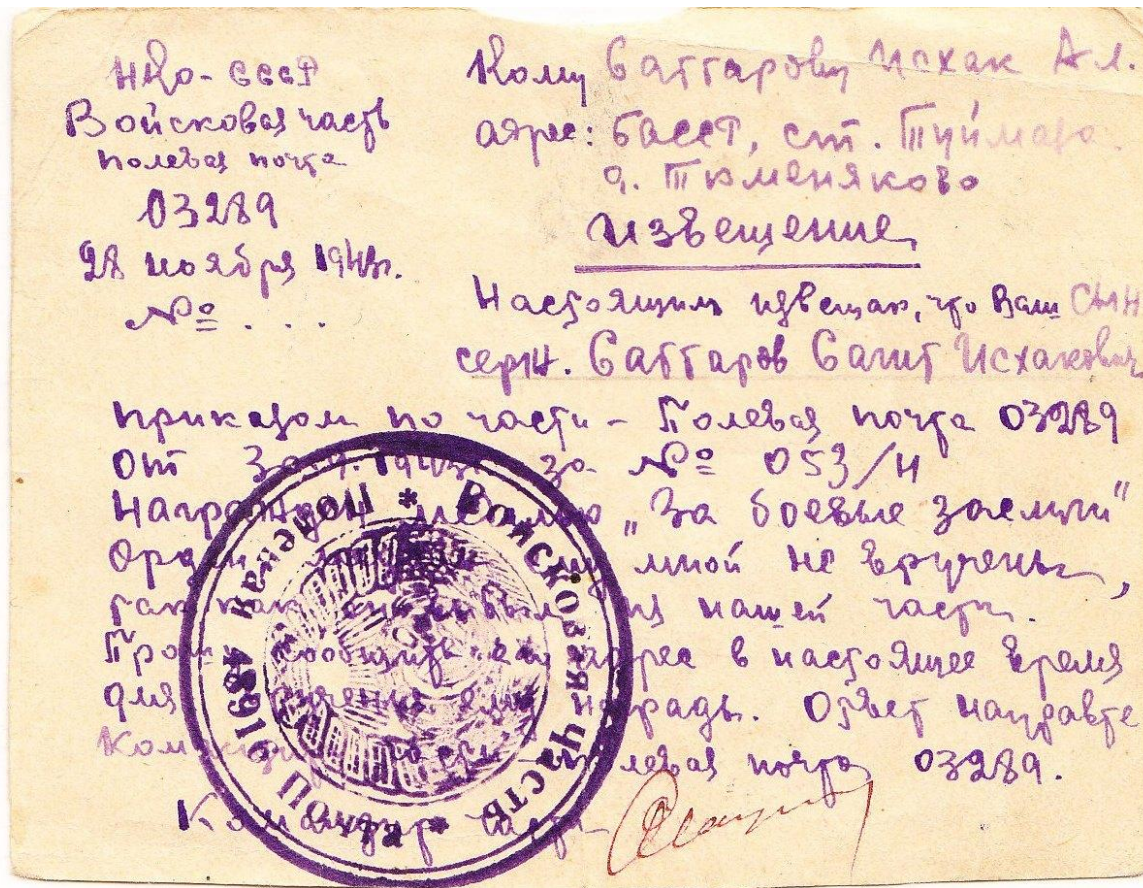 НКО-СССР
Войсковая часть
полевая почта
03289
28 ноября 1943г.
№ . . .
Кому Саттарову Исхак Ал.
адрес: БАССР, ст. Туймаза
д. Тюменяково
Извещение
Настоящим извещаю, что Ваш сын
серж. Саттаров Сагит Исхакович
приказом по части – Полевая почта 03289
от за № 053/Н
Награжден медалью „За боевые заслуги"
мной не вручены,
так как из нашей части.
Прошу сообщить его адрес в настоящее время
для вручения ему награды. Ответ направьте
Командиру части – полевая почта 03289.
Командир части
* Войсковая часть * Полевая почта